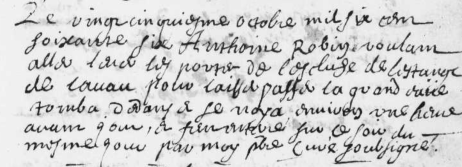 Le vingt cinquiesme octobre mil six cen
soixante six Anthoine Robin voulant
aller lever les portes de l'escluse de l'estang
de lavau pour laisser passer la grand eaue
tomba dedans et se noya environ une heure
avant jour, et feu enterré sur le soir du
mesme jour par moy pbre Curé soubsigné